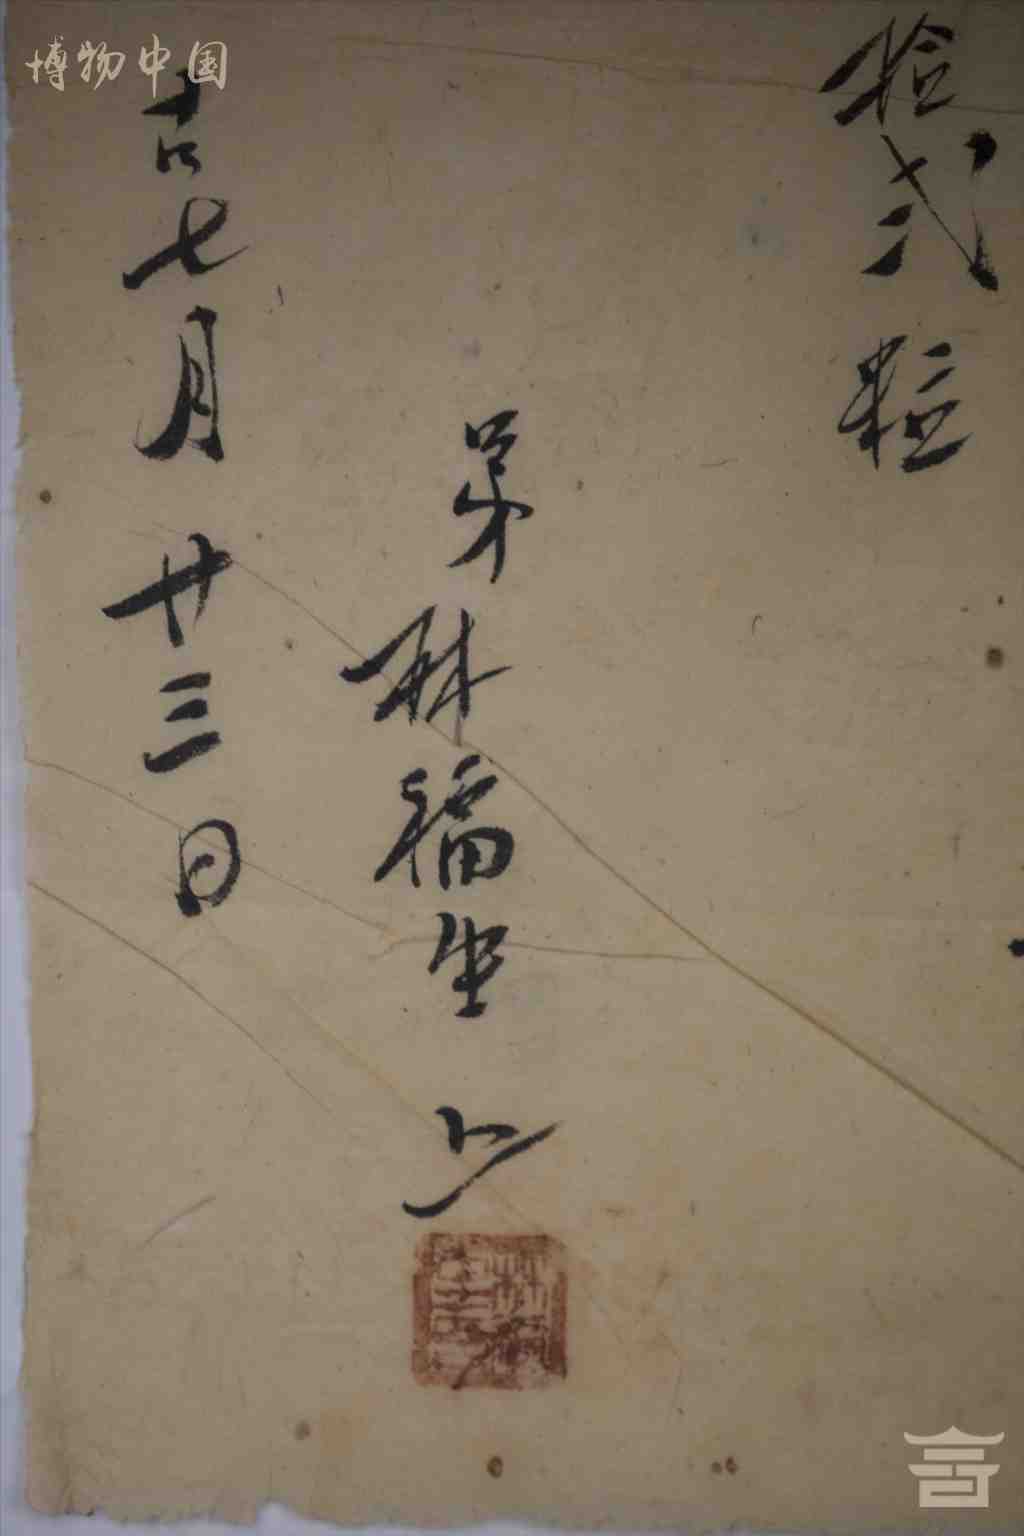 拾弍粒
弟林福生上
吉七月廿三日
博物中国